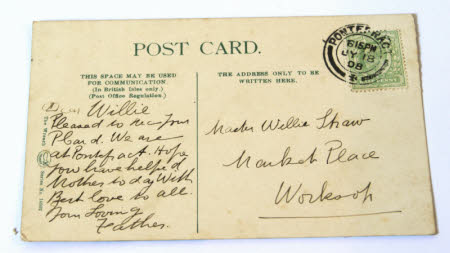 POST CARD.
THIS SPACE MAY BE USED
FOR COMMUNICATION
(In British Isles only.)
(Post Office Regulation.)
THE ADDRESS ONLY TO BE
WRITTEN HERE.
PONTEFRACT
615PM
JY 18
08
Dear Willie
Pleased to rec your
P Card. We are
at Pontefract Hope
you have helped
Mother to day With
Best love to all.
Your Loving
Father.
Master Willie Shaw
Market Place
Worksop
The Wrench
Series No.